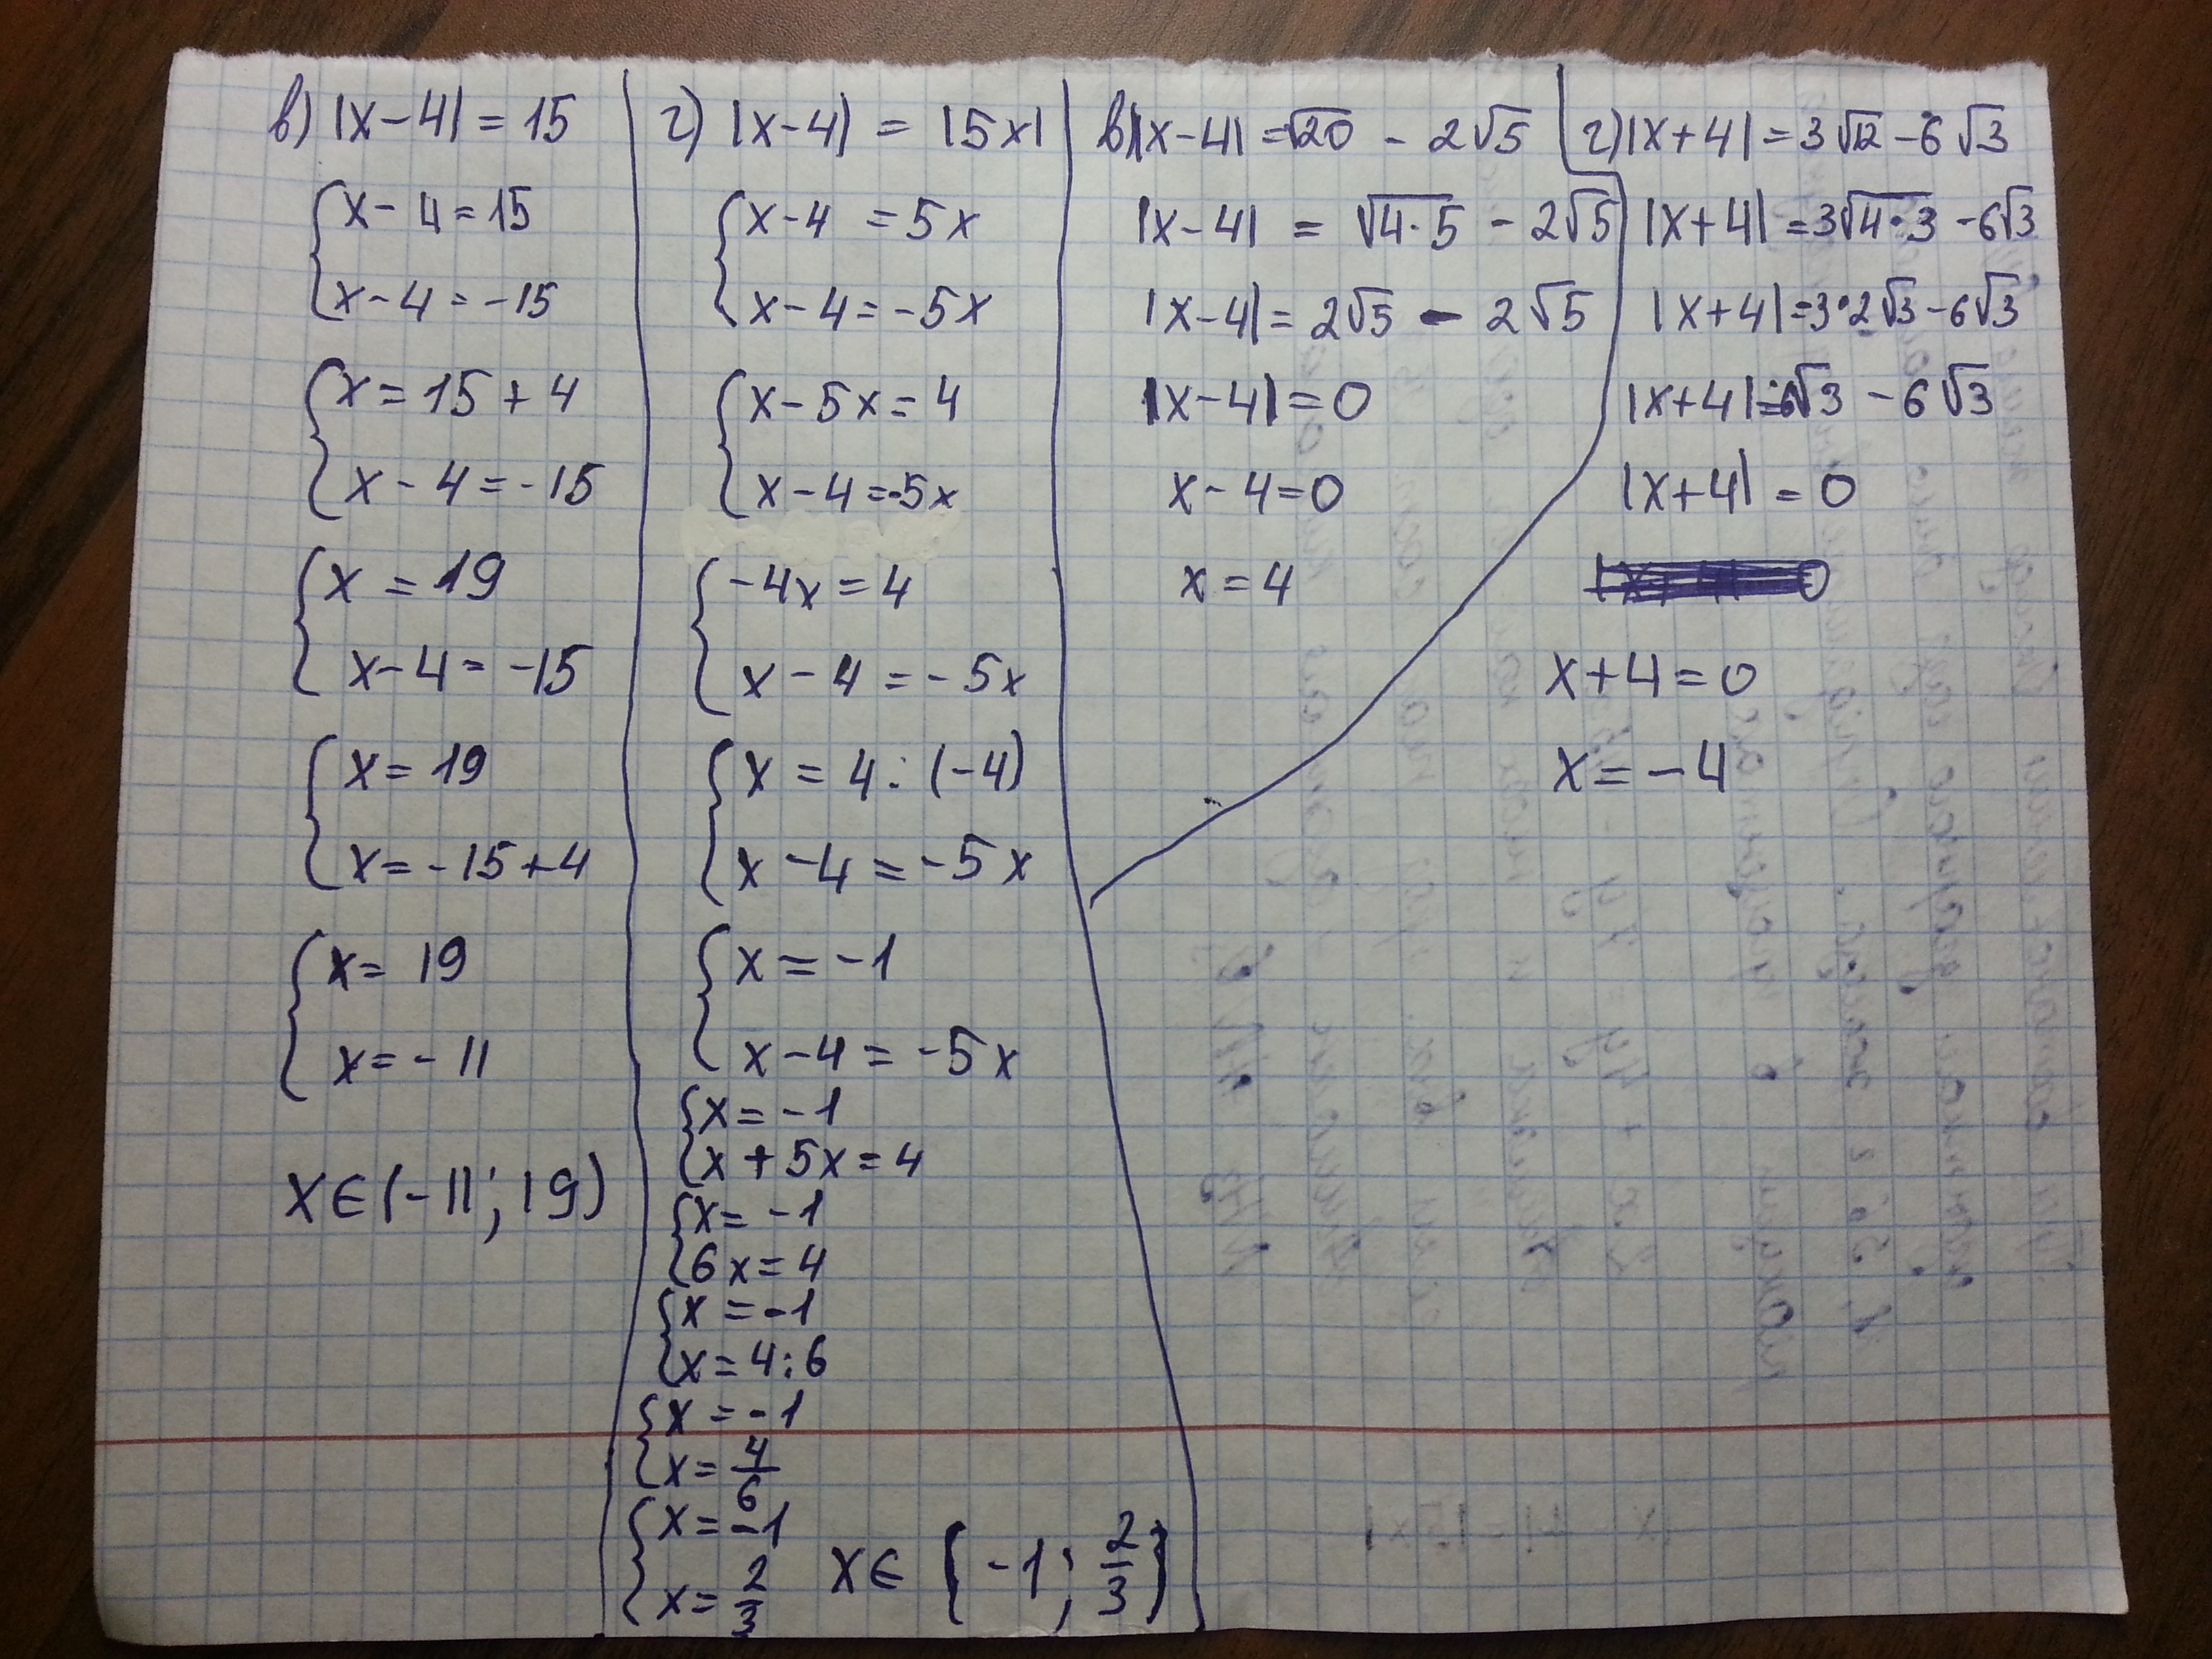 в) |x-4| = 15
{x-4=15
x-4=-15
{x=15+4
x-4=-15
{x=19
x-4=-15
{x=19
x=-15+4
{x=19
x=-11
x∈(-11; 19)
г) |x-4| = |5x|
{x-4=5x
x-4=-5x
{x-5x=4
x-4=-5x
{-4x=4
x-4=-5x
{x=4:(-4)
x-4=-5x
{x=-1
x-4=-5x
{x=-1
x+5x=4
{x=-1
6x=4
{x=-1
x=4:6
{x=-1
x=4/6
{x=-1
x=2/3
x∈(-1; 2/3)
в) |x-4| = √20 - 2√5
|x-4| = √4·5 - 2√5
|x-4| = 2√5 - 2√5
|x-4| = 0
x-4=0
x=4
г) |x+4| = 3√12 - 6√3
|x+4| = 3√4·3 - 6√3
|x+4| = 3·2√3 - 6√3
|x+4| = 6√3 - 6√3
|x+4| = 0
x+4=0
x=-4